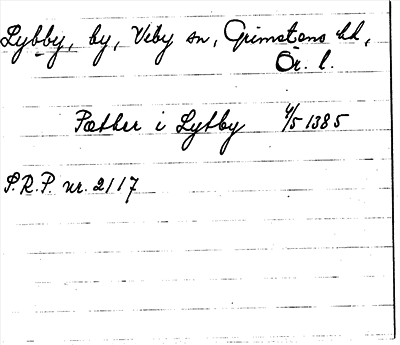 Lybby, by, Viby sn, Grimstens hd,
Ör. l.
Pæther i Lytby 4/5 1385
S.R.P. nr. 2117